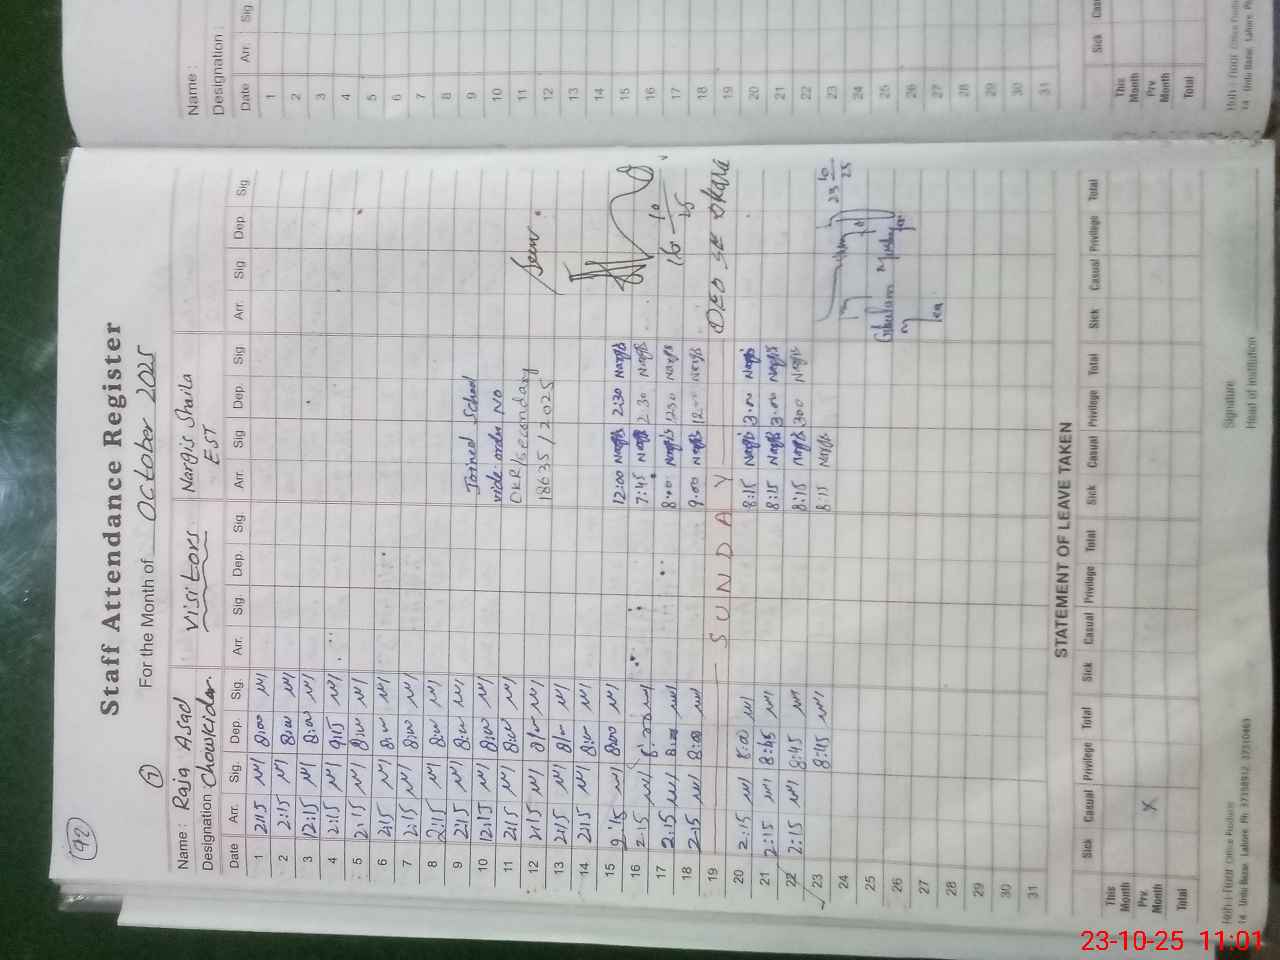 92
Staff Attendance Register
7
For the Month of October 2025
Name : Raja Asad
Visitors
Nargis Shaila
Designation : Chowkidar
EST
Date Arr. Sig. Dep. Sig. Arr. Sig. Dep. Sig Arr. Sig Dep. Sig Arr. Sig Dep Sig
1 2:15 8:00
2 2:15 8:00
3 12:15 8:00
4 2:15 9:15
5 2:15 8:00
6 2:15 8:00
7 2:15 8:00
8 2:15 8:00
9 2:15 8:00 Joined School
10 12:15 8:00 vide order No
11 2:15 8:00 OKR/secondary Seen
12 2:15 18635/2025
13 2:15
14 2:15 8:00
15 2:15 8:00 12:00 Nargis 2:30 Nargis
16 2:15 8:00 7:45 Nargis 2:30 Nargis
17 2:15 8:00 8:00 Nargis 1230 Nargis 16-10-25
18 2:15 8:00 9:00 Nargis 12:00 Nargis
19 SUNDAY DEO SE Okara
20 2:15 8:00 8:15 Nargis 3:00 Nargis
21 2:15 8:45 8:15 Nargis 3:00 Nargis
22 2:15 8:45 8:15 Nargis 300 Nargis
23 8:45 8:15 Nargis 23 10 25
24
25 Ghulam
26
27
28
29
30
31
STATEMENT OF LEAVE TAKEN
Sick Casual Privilege Total Sick Casual Privilege Total Sick Casual Privilege Total Sick Casual Privilege Total
This Month
Prv. Month X
Total
Signature
Head of Institution
14 - Urdu Bazar, Lahore. Ph: 37358912, 37310463
Name :
Designation :
Date Arr. Sig
1
2
3
4
5
6
7
8
9
10
11
12
13
14
15
16
17
18
19
20
21
22
23
24
25
26
27
28
29
30
31
Sick
This Month
Prv. Month
Total
23-10-25 11:01